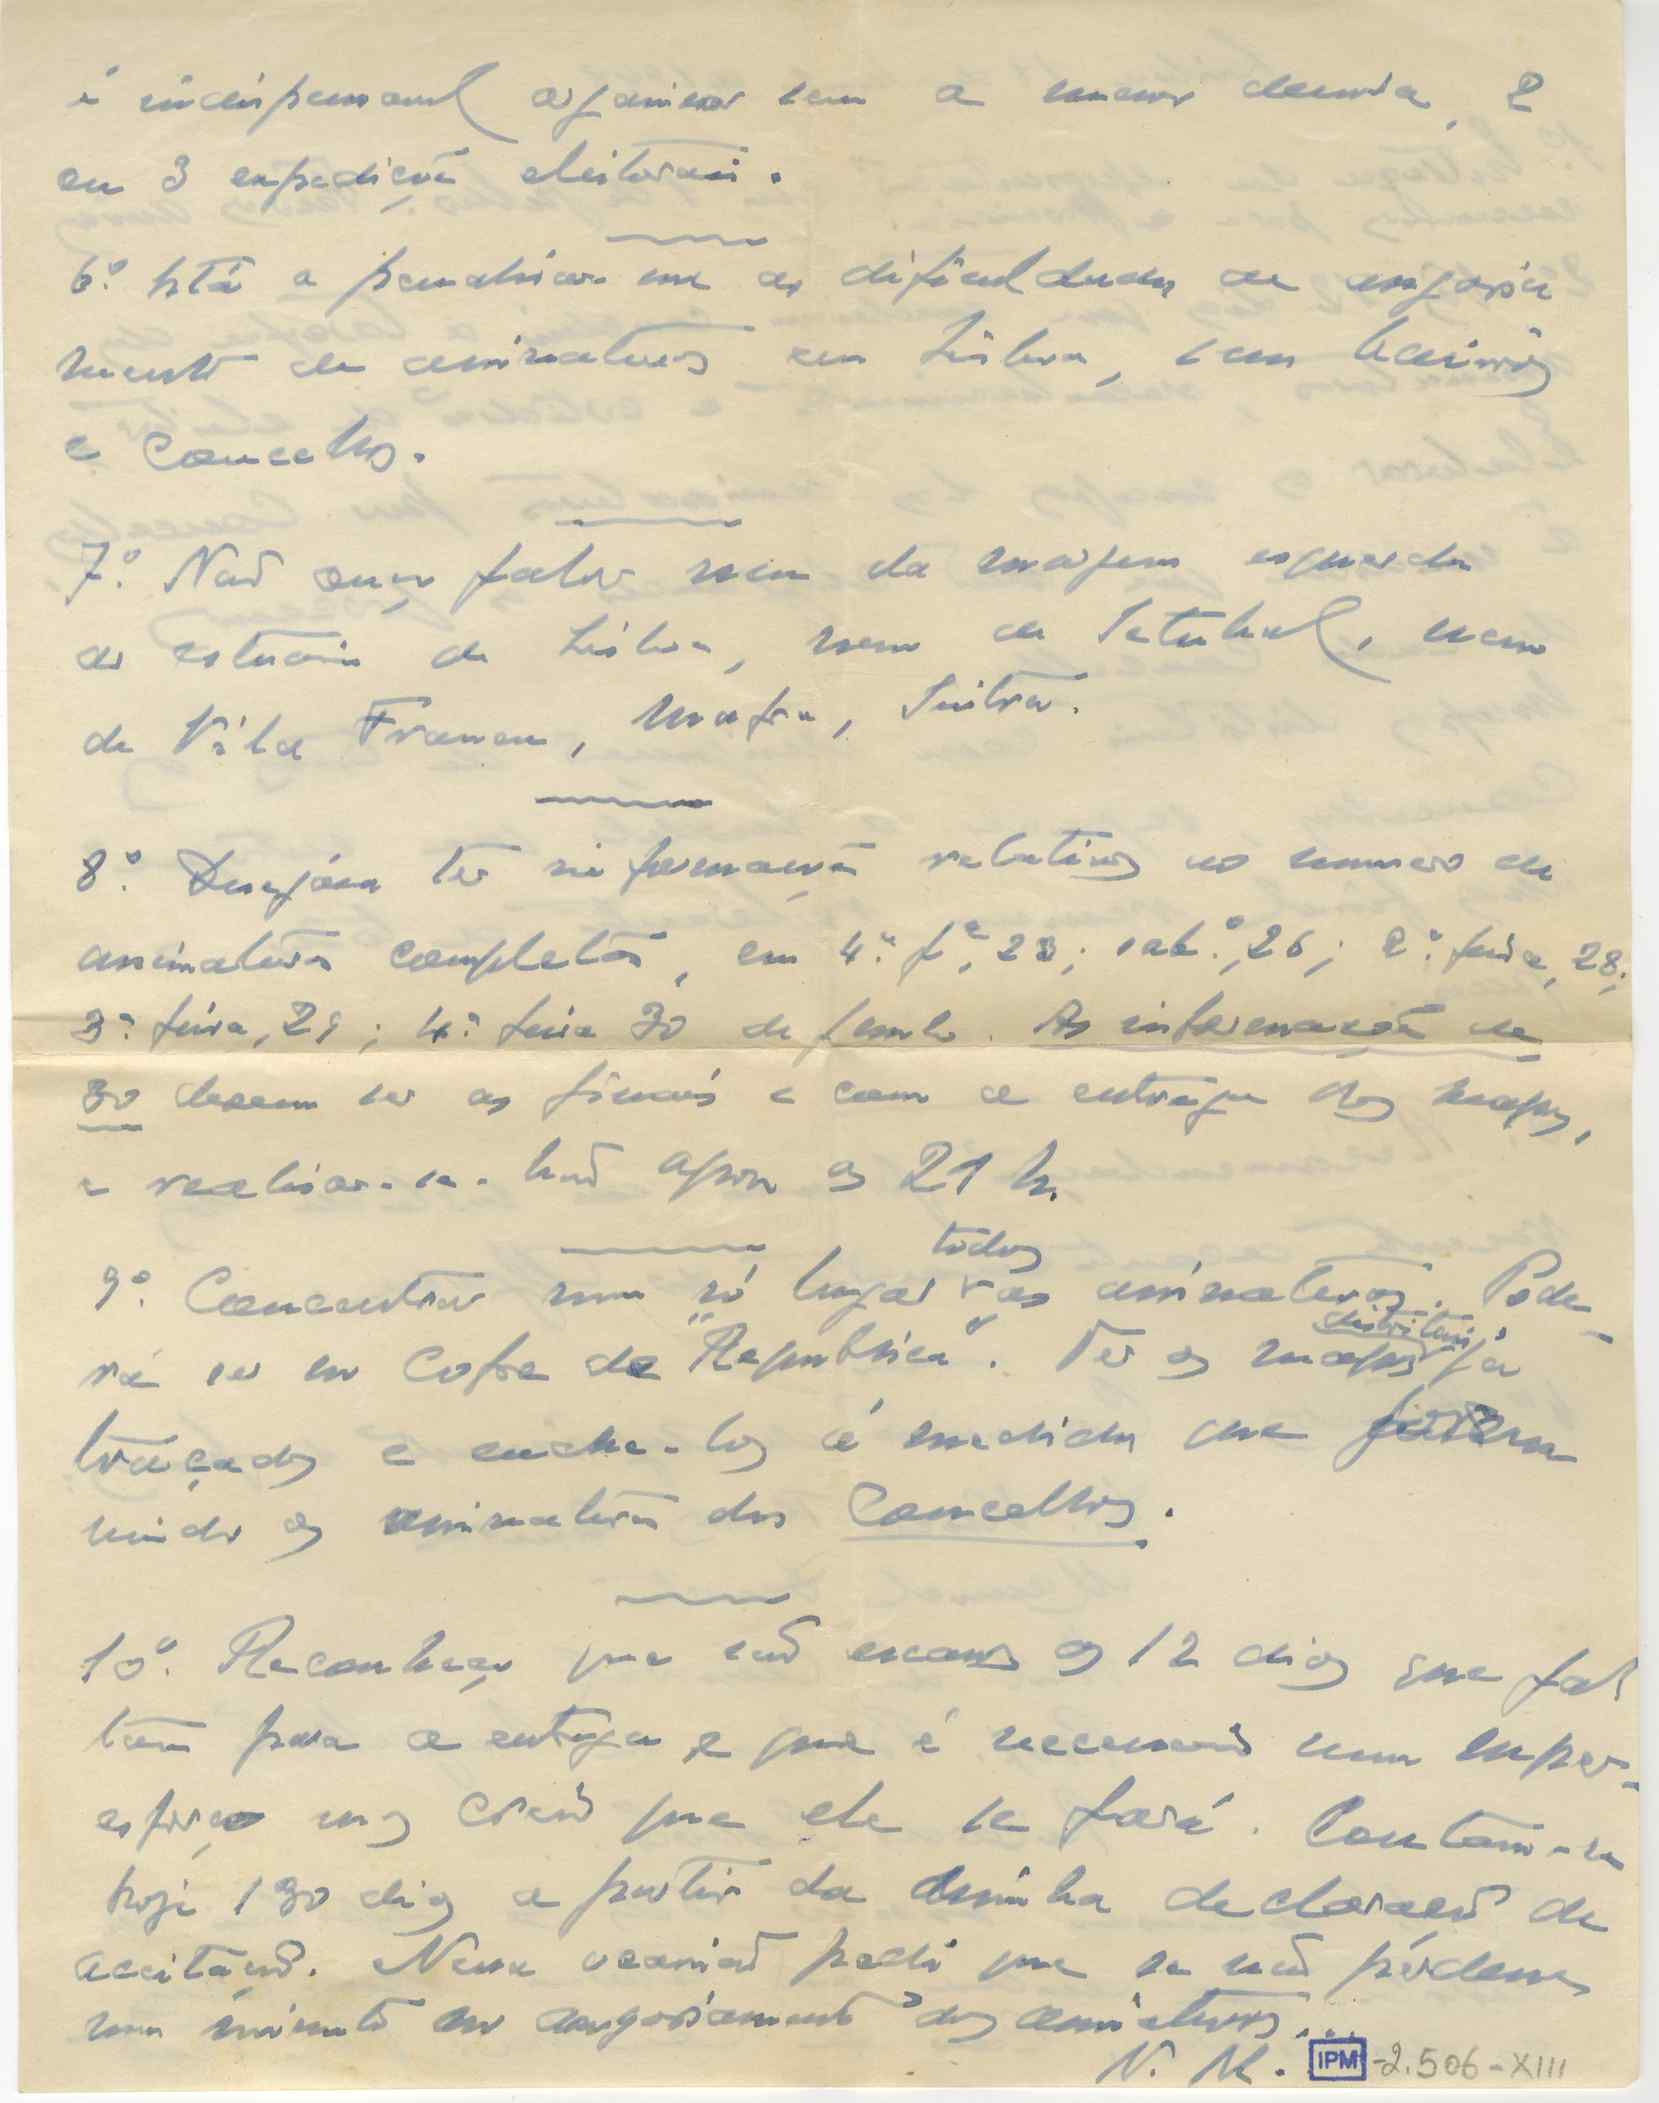 é indispensavel organisar sem a menor demora, 2
ou 3 expedições eleitorais.
6.º Está a penalisar-me as dificuldades de angaria
mento de assinaturas em Lisboa, seus bairros
e concelhos.
7.º Não ouço falar nem da margem esquerda
do estuario de Lisboa, nem de Setubal, nem
de Vila Franca, Mafra, Sintra.
8.º Desejava ter informações relativas ao numero de
assinaturas completas, em 4.ª fª, 23; sab.º, 26; 2.ª feira, 28;
3.ª feira, 29; 4.ª feira 30 de Junho. As informações de
30 devem ser as finais e com a entrega dos mapas,
a realisar-se. Não após as 21 h.
9.º Concentrar num só lugar todas as assinaturas. Pode-
rá ser no Cofre da "Republica". Ter os mapas distritais já
traçados e enche-los á medida que forem
vindo as assinaturas dos Concelhos.
10.º Reconheço que são escassos os 12 dias que fal
tam para a entrega e que é necessario um super-
esforço mas creio que ele se fará. Contam-se
hoje 130 dias a partir da minha declaração de
aceitação. Nessa ocasião pedi que se não perdesse
um minuto no angariamento das assinaturas...
N. M. IPM -2.506-XIII